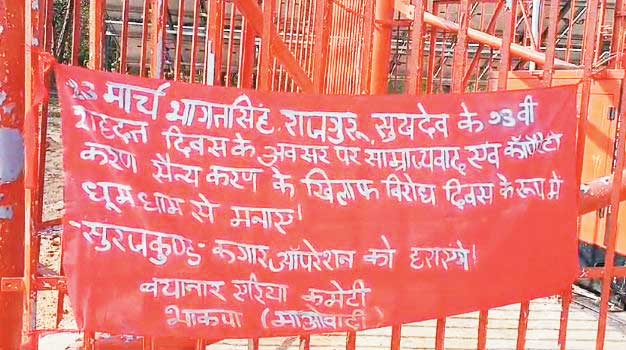 23 मार्च भगतसिंह, राजगुरू, सुखदेव के 93 वी
शहादत दिवस के अवसर पर साम्राज्यवाद एवं कॉर्पोरेटी
करण सैन्य करण के खिलाफ विरोध दिवस के रूप मे
धूमधाम से मनाए।
-सुरजकुण्ड- कगार ऑपरेशन को हराएंगे।
बयानार एरिया कमेटी
भाकपा (माओवादी)